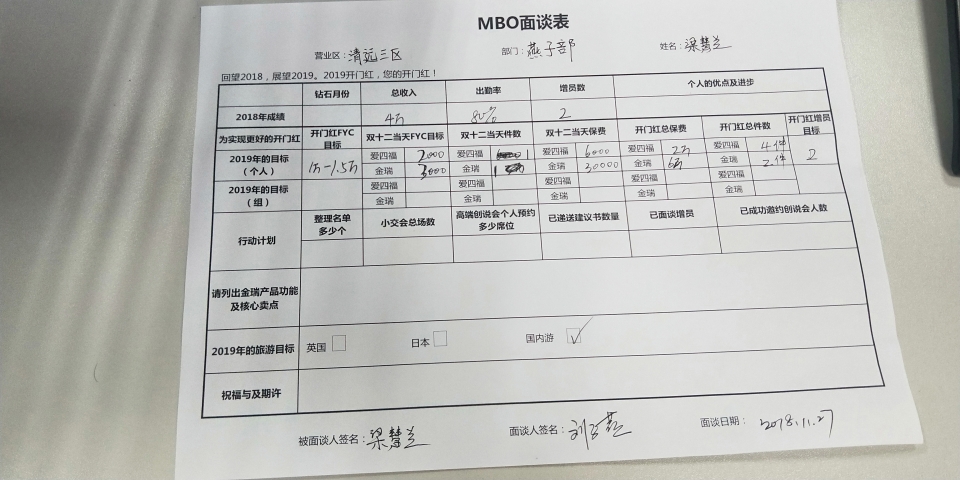 MBO面谈表
营业区：清远三区 部门：燕子部 姓名：梁慧兰
回望2018，展望2019。2019开门红，您的开门红！
钻石月份 总收入 出勤率 增员数 个人的优点及进步
2018年成绩 4万 80% 2
为实现更好的开门红 开门红FYC目标 双十二当天FYC目标 双十二当天件数 双十二当天保费 开门红总保费 开门红总件数 开门红增员目标
2019年的目标（个人） 1万-1.5万 爱四福 2000 爱四福 1 爱四福 6000 爱四福 2万 爱四福 4件 2
金瑞 3000 金瑞 1 金瑞 30000 金瑞 6万 金瑞 2件
2019年的目标（组） 爱四福 爱四福 爱四福 爱四福 爱四福
金瑞 金瑞 金瑞 金瑞 金瑞
行动计划 整理名单多少个 小交会总场数 高端创说会个人预约多少席位 已递送建议书数量 已面谈增员 已成功邀约创说会人数
请列出金瑞产品功能及核心卖点
2019年的旅游目标 英国 日本 国内游 ✓
祝福与及期许
被面谈人签名：梁慧兰 面谈人签名：刘 面谈日期：2018.11.27